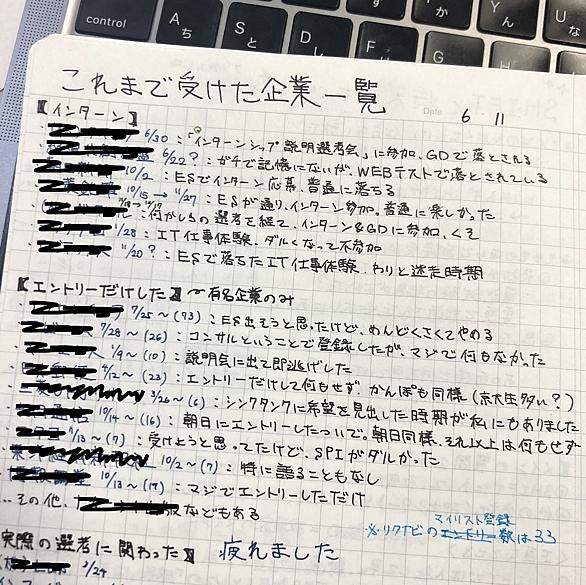 control
A
ち
S
と
D
し
F
T
か
Y
ん
G
H
U
な
これまで受けた企業一覧
Date 6 11
【インターン】
6/30：「インターンシップ説明選考会」に参加、GDで落とされる
6/22？：ガチで記憶にないが、WEBテストで落とされている
10/2：ESでインターン応募、普通に落ちる
10/15→11/27：ESが通り、インターン参加。普通に楽しかった
：何かしらの選考を経て、インターン&GDに参加、くそ
11/28：IT仕事体験、ダルくなって不参加
11/20？：ESで落ちたIT仕事体験、わりと迷走時期
【エントリーだけした】〜有名企業のみ
7/25〜(73)：ES出そうと思ったけど、めんどくさくてやめる
7/28〜(26)：コンサルということで登録したが、マジで何もなかった
1/9〜(10)：説明会に出て即逃げした
4/12〜(23)：エントリーだけして何もせず、かんぽも同様(京大生多い？)
3/26〜(6)：シンクタンクに希望を見出した時期が私にもありました
10/14〜(16)：朝日にエントリーしたついで。朝日同様、それ以上は何もせず
1/13〜(7)：受けようと思ってたけど、SPIがダルかった
10/2〜(7)：特に語ることもなし
10/13〜(17)：マジでエントリーしただけ
…その他、などもある
マイリスト登録
※リクナビの数は33
実際の選考に関わった】疲れました
3/24